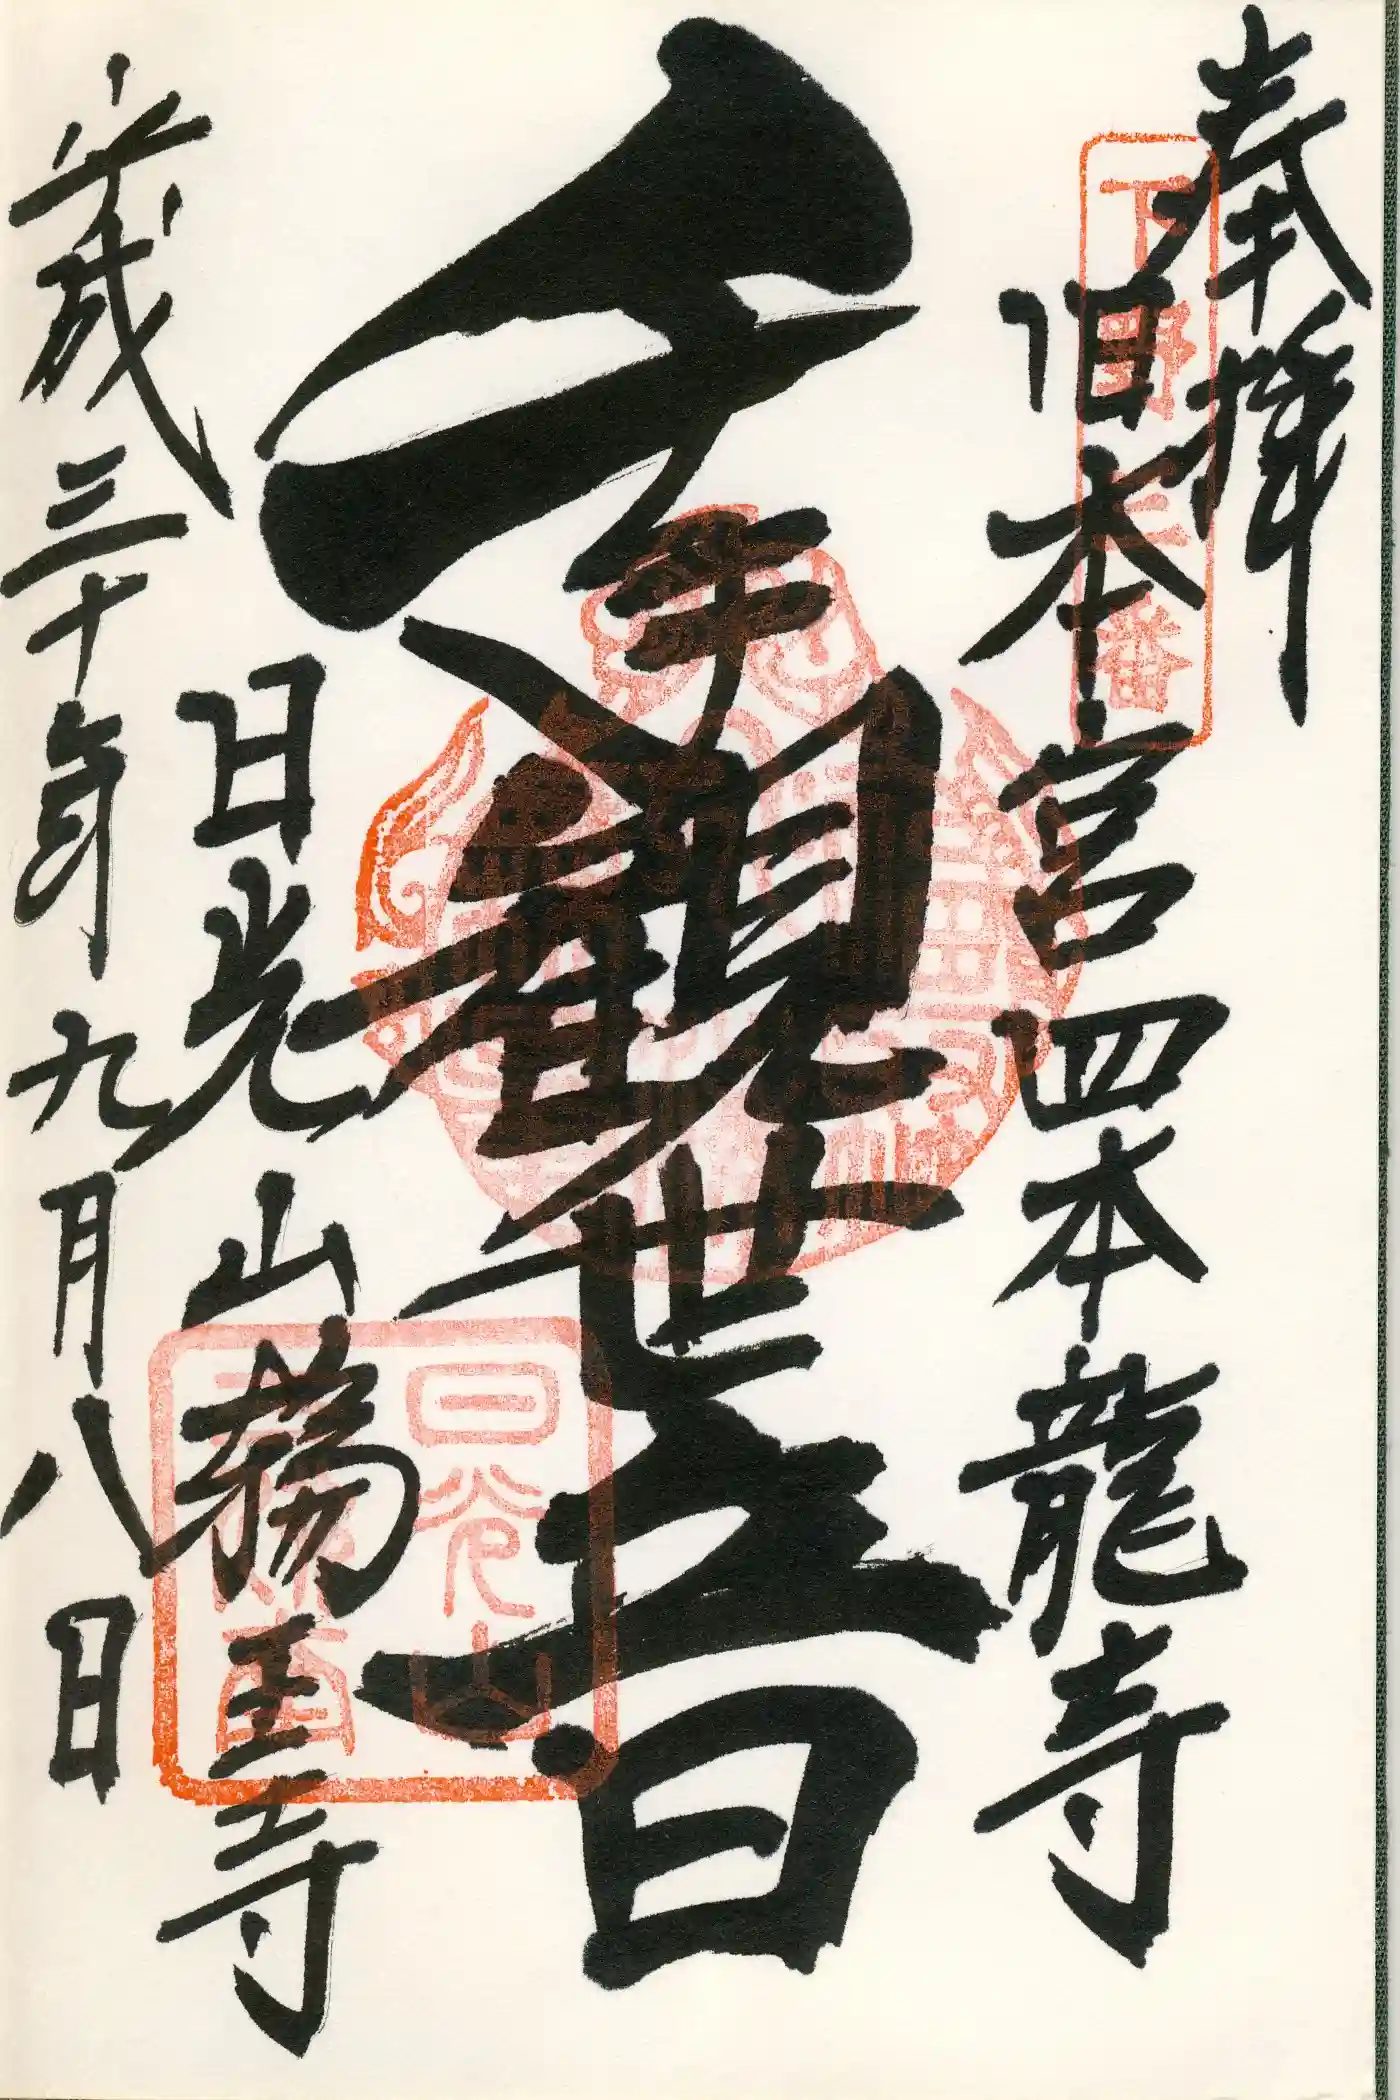 奉拝
下野 番
旧本宮四本龍寺
千手觀世音
日光山
日光山輪王寺
平成三十年九月八日